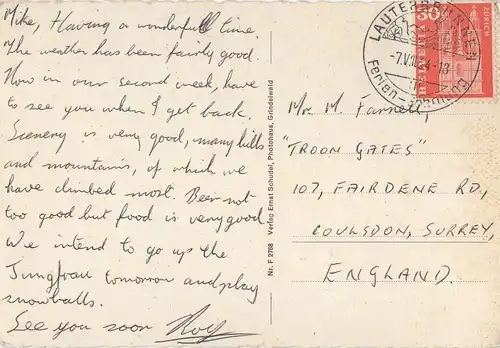 Mike, Having a wonderfull time.
The weather has been fairly good.
Now in our second week, have
to see you when I get back.
Scenery is very good, many hills
and mountains, of which we
have climbed most. Beer not
too good but food is very good
We intend to go up the
Jungfrau tomorrow and play
snowballs.
See you soon Roy
Nr. F 2768 Verlag Ernst Schudel, Photohaus, Grindelwald
LAUTERBRUNNEN
Ferien-
HELVETIA
30
ZÜRICH
Mr. M. Farnell,
"TROON GATES"
107, FAIRDENE RD.,
COULSDON, SURREY,
ENGLAND.